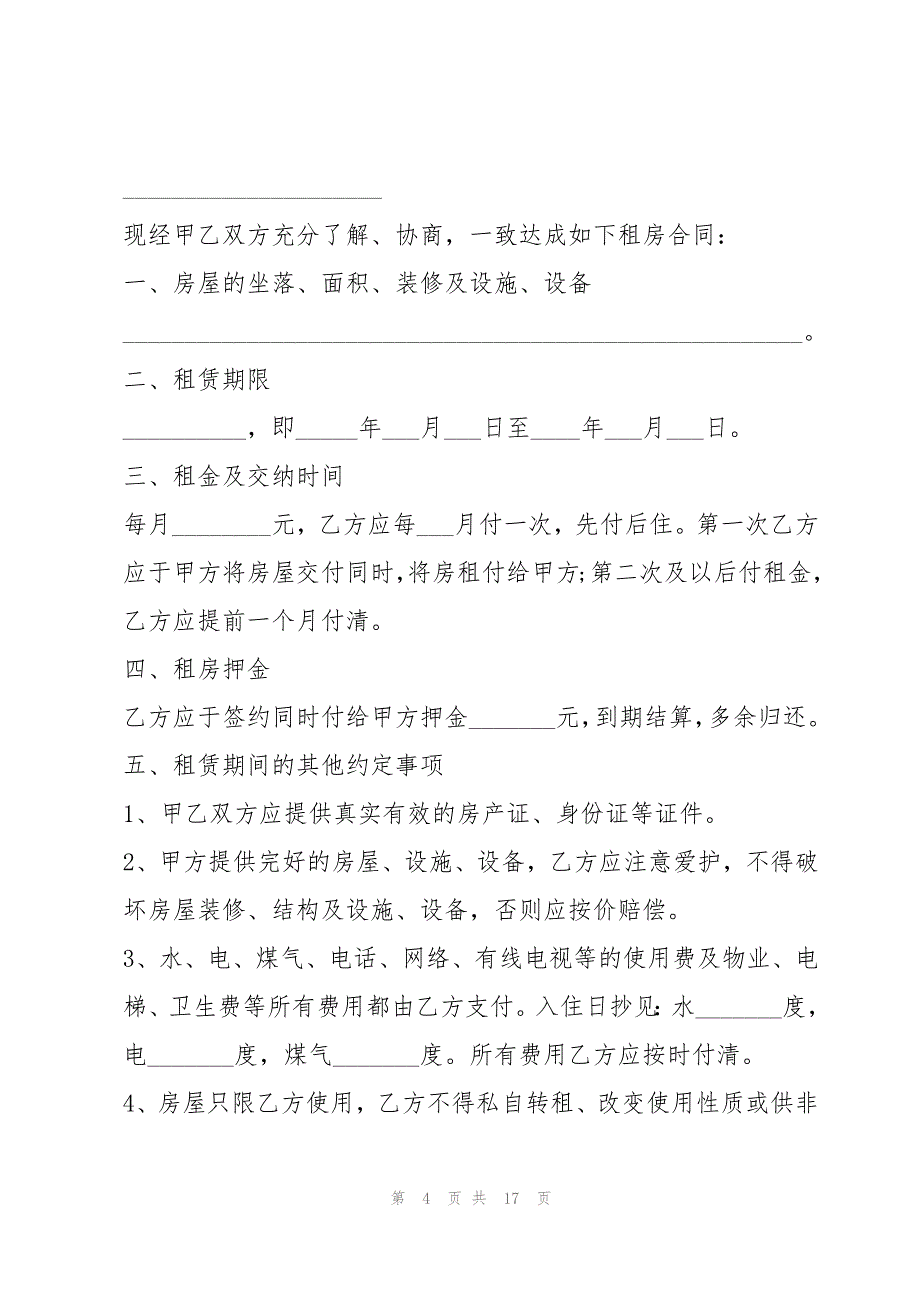 _____________________
现经甲乙双方充分了解、协商，一致达成如下租房合同：
一、房屋的坐落、面积、装修及设施、设备
_______________________________________________________。
二、租赁期限
__________，即_____年___月___日至____年___月___日。
三、租金及交纳时间
每月________元，乙方应每___月付一次，先付后住。第一次乙方
应于甲方将房屋交付同时，将房租付给甲方;第二次及以后付租金，
乙方应提前一个月付清。
四、租房押金
乙方应于签约同时付给甲方押金_______元，到期结算，多余归还。
五、租赁期间的其他约定事项
1、甲乙双方应提供真实有效的房产证、身份证等证件。
2、甲方提供完好的房屋、设施、设备，乙方应注意爱护，不得破
坏房屋装修、结构及设施、设备，否则应按价赔偿。
3、水、电、煤气、电话、网络、有线电视等的使用费及物业、电
梯、卫生费等所有费用都由乙方支付。入住日抄见：水_______度，
电_______度，煤气_______度。所有费用乙方应按时付清。
4、房屋只限乙方使用，乙方不得私自转租、改变使用性质或供非
第 4 页 共 17 页